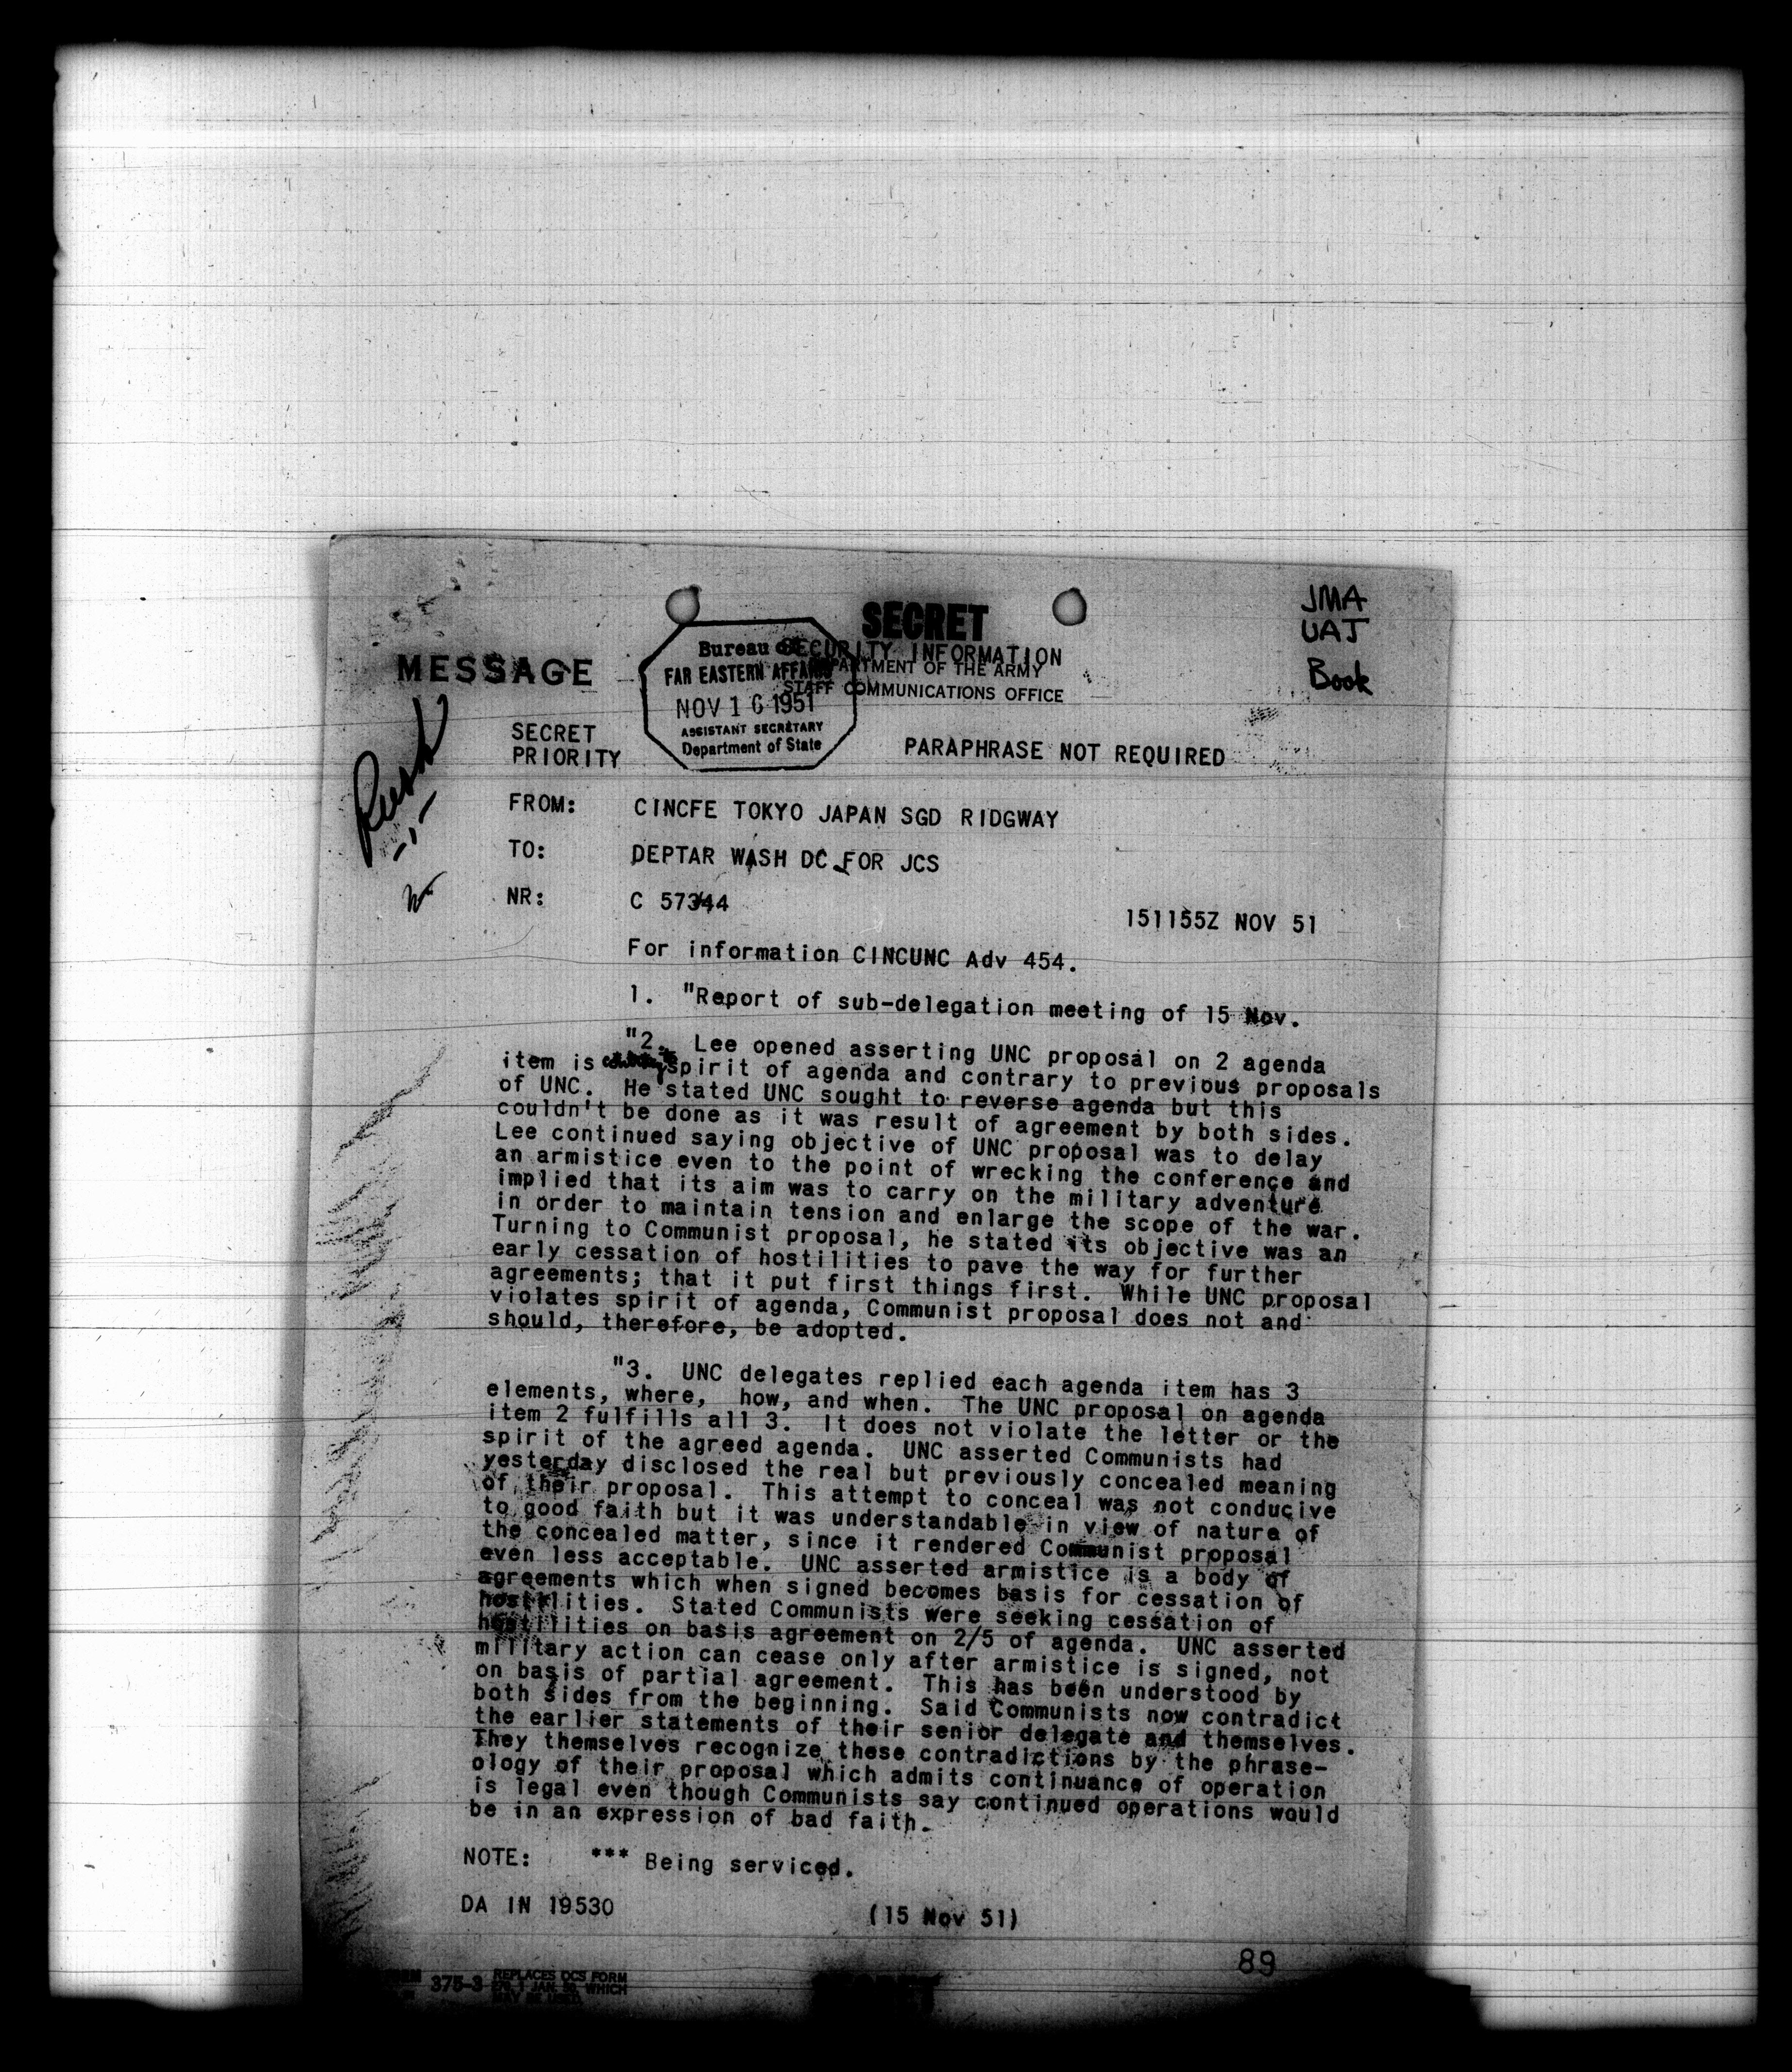 JMA
UAJ
Book
SECRET
SECURITY INFORMATION
DEPARTMENT OF THE ARMY
STAFF COMMUNICATIONS OFFICE
MESSAGE
Bureau of
FAR EASTERN AFFAIRS
NOV 16 1951
ASSISTANT SECRETARY
Department of State
SECRET
PRIORITY
PARAPHRASE NOT REQUIRED
FROM: CINCFE TOKYO JAPAN SGD RIDGWAY
TO: DEPTAR WASH DC FOR JCS
NR: C 57344
151155Z NOV 51
For information CINCUNC Adv 454.
1. "Report of sub-delegation meeting of 15 Nov.
"2. Lee opened asserting UNC proposal on 2 agenda
item is spirit of agenda and contrary to previous proposals
of UNC. He stated UNC sought to reverse agenda but this
couldn't be done as it was result of agreement by both sides.
Lee continued saying objective of UNC proposal was to delay
an armistice even to the point of wrecking the conference and
implied that its aim was to carry on the military adventure
in order to maintain tension and enlarge the scope of the war.
Turning to Communist proposal, he stated its objective was an
early cessation of hostilities to pave the way for further
agreements; that it put first things first. While UNC proposal
violates spirit of agenda, Communist proposal does not and
should, therefore, be adopted.
"3. UNC delegates replied each agenda item has 3
elements, where, how, and when. The UNC proposal on agenda
item 2 fulfills all 3. It does not violate the letter or the
spirit of the agreed agenda. UNC asserted Communists had
yesterday disclosed the real but previously concealed meaning
of their proposal. This attempt to conceal was not conducive
to good faith but it was understandable in view of nature of
the concealed matter, since it rendered Communist proposal
even less acceptable. UNC asserted armistice is a body of
agreements which when signed becomes basis for cessation of
hostilities. Stated Communists were seeking cessation of
hostilities on basis agreement on 2/5 of agenda. UNC asserted
military action can cease only after armistice is signed, not
on basis of partial agreement. This has been understood by
both sides from the beginning. Said Communists now contradict
the earlier statements of their senior delegate and themselves.
They themselves recognize these contradictions by the phrase-
ology of their proposal which admits continuance of operation
is legal even though Communists say continued operations would
be in an expression of bad faith.
NOTE: *** Being serviced.
DA IN 19530 (15 Nov 51)
89
375-3 REPLACES DCS FORM
1 JAN WHICH
MAY BE USED.